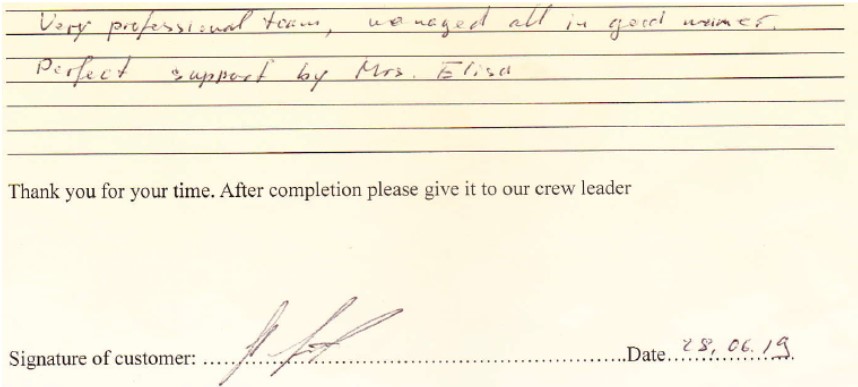 Very professional team, managed all in good manner.
Perfect support by Mrs. Elisa
Thank you for your time. After completion please give it to our crew leader
Signature of customer: ........................................Date 28.06.19